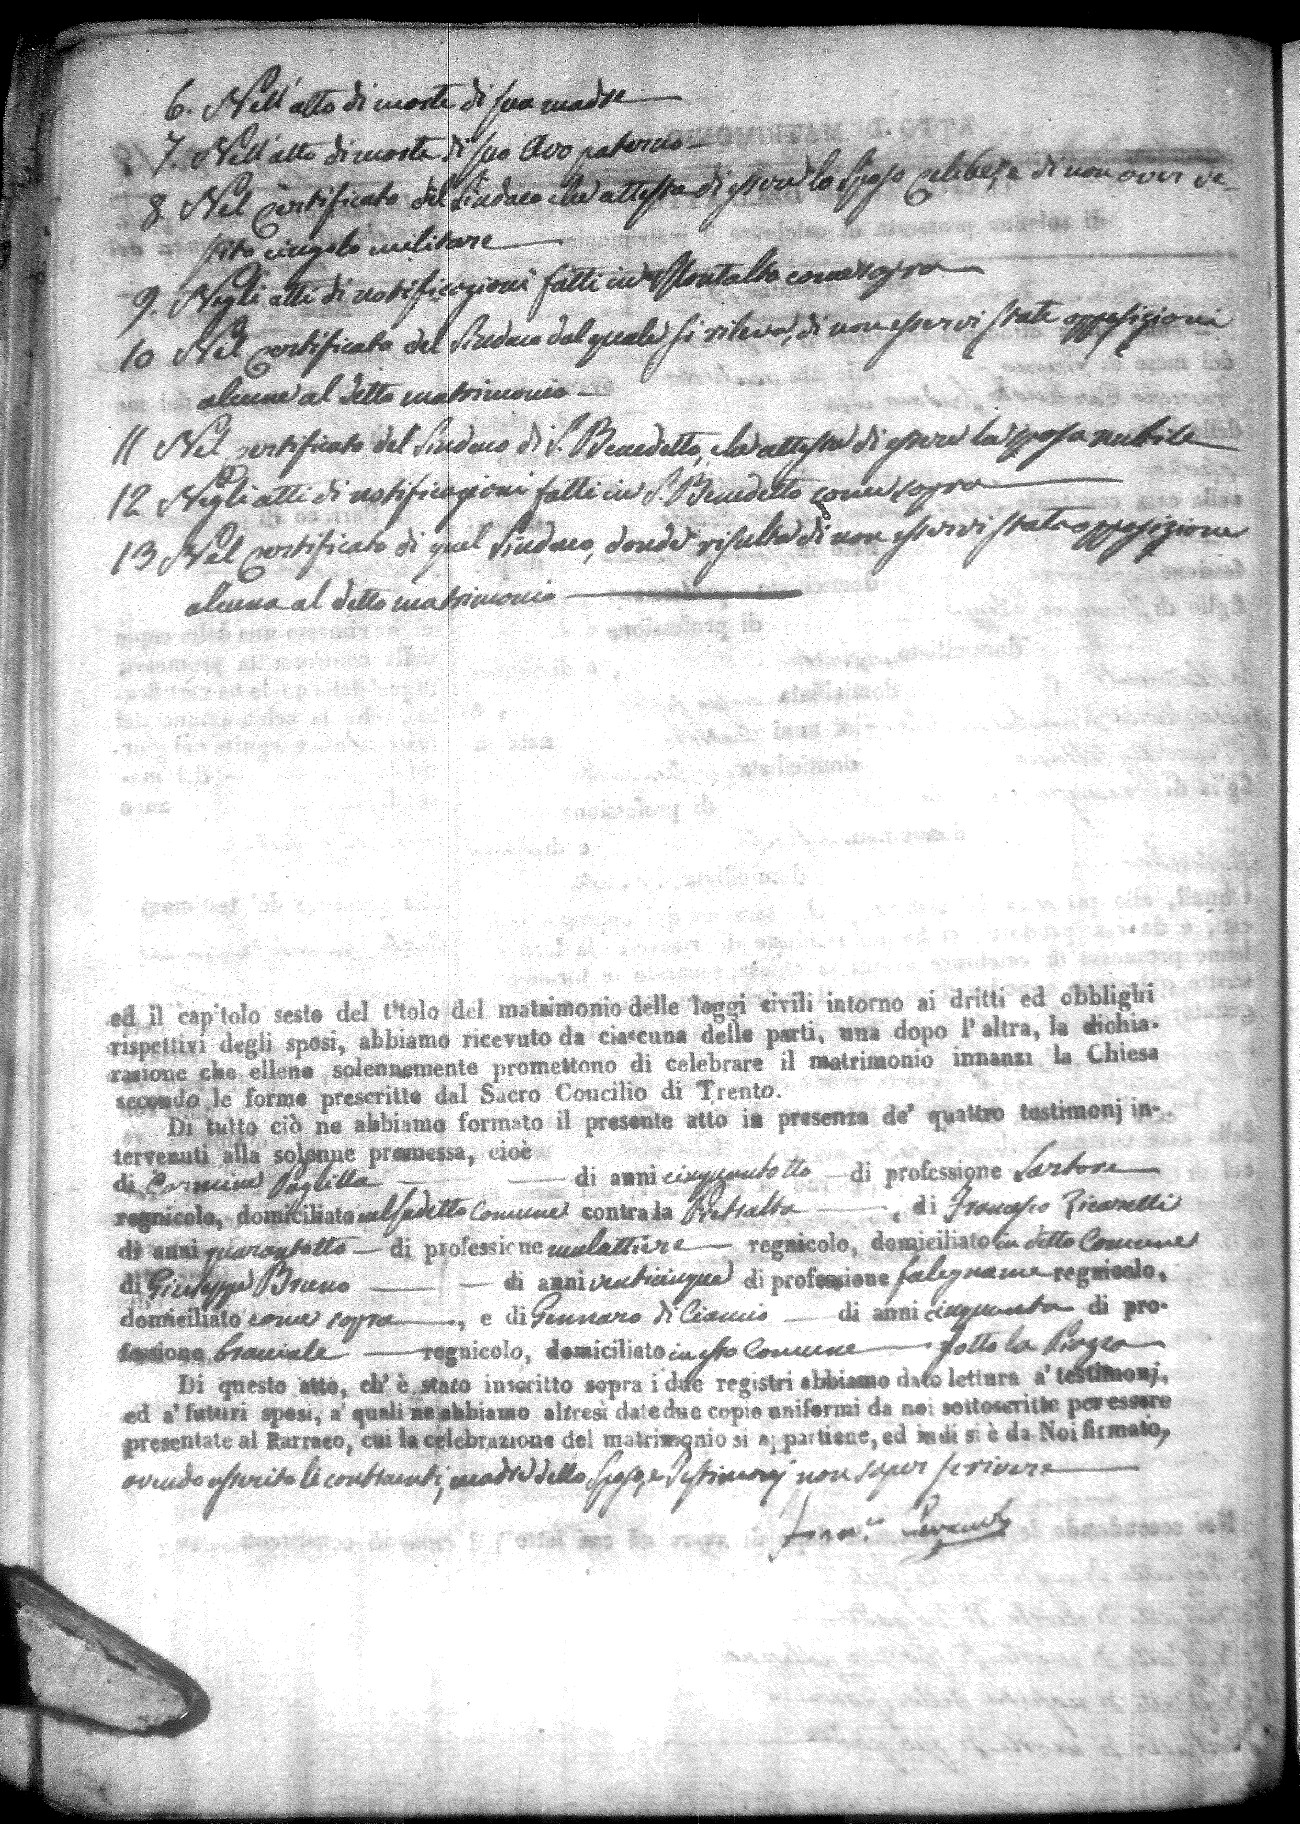 6. Nell'atto di morte di sua madre
7. Nell'atto di morte di suo Avo paterno
8. Nel certificato del Sindaco che attesta di essere lo Sposo celibe, e di non aver ve-
stito cingolo militare
9. Negli atti di notificazioni fatti in Montalto come sopra
10 Nel certificato del Sindaco dal quale si rileva, di non esservi state opposizioni
alcune al detto matrimonio
11 Nel certificato del Sindaco di S. Benedetto, che attesta di essere la sposa nubile
12 Negli atti di notificazioni fatti in S. Benedetto come sopra
13 Nel certificato di quel Sindaco, donde risulta di non esservi stata opposizione
alcuna al detto matrimonio
ed il capitolo sesto del titolo del matrimonio delle leggi civili intorno ai dritti ed obblighi
rispettivi degli sposi, abbiamo ricevuto da ciascuna delle parti, una dopo l'altra, la dichia-
razione che elleno solennemente promettono di celebrare il matrimonio innanzi la Chiesa
secondo le forme prescritte dal Sacro Concilio di Trento.
Di tutto ciò ne abbiamo formato il presente atto in presenza de' quattro testimonj in-
tervenuti alla solenne promessa, cioè
di Carmine Puglilla di anni cinquantotto di professione Sartore
regnicolo, domiciliato nel sudetto Comune contrada , di Francesco
di anni quarantotto di professione mulattiere regnicolo, domiciliato in detto Comune
di Giuseppe Bruno di anni venticinque di professione falegname regnicolo,
domiciliato come sopra , e di Gennaro di Ciancio di anni cinquanta di pro-
fessione bracciale regnicolo, domiciliato in esto Comune sotto la Piazza
Di questo atto, ch'è stato inscritto sopra i due registri abbiamo dato lettura a' testimonj,
ed a' futuri sposi, a' quali ne abbiamo altresì date due copie uniformi da noi sottoscritte per essere
presentate al Parroco, cui la celebrazione del matrimonio si appartiene, ed indi si è da Noi firmato,
avendo asserito li contraenti, madre dello Sposo, e Testimonj non saper scrivere